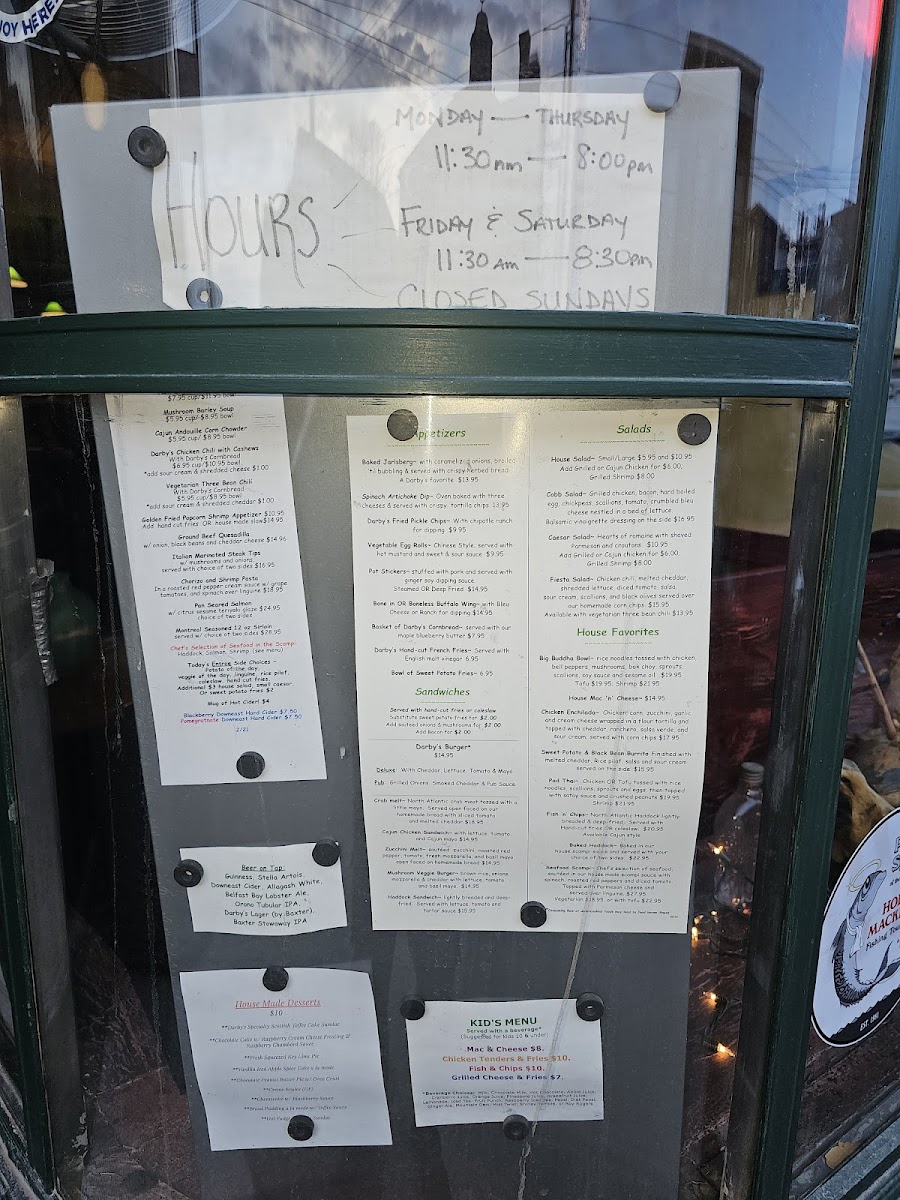 OY HERE!
HOURS
MONDAY — THURSDAY
11:30 am — 8:00 pm
FRIDAY & SATURDAY
11:30 AM — 8:30 pm
CLOSED SUNDAYS
$7.95 cup/$11.95 bowl
Mushroom Barley Soup
$5.95 cup/ $8.95 bowl
Cajun Andouille Corn Chowder
$5.95 cup/ $8.95 bowl
Darby's Chicken Chili with Cashews
With Darby's Cornbread
$6.95 cup/$10.95 bowl
*add sour cream & shredded cheese $1.00
Vegetarian Three Bean Chili
With Darby's Cornbread
$5.95 cup/$8.95 bowl
*add sour cream & shredded cheddar $1.00
Golden Fried Popcorn Shrimp Appetizer $10.95
Add hand cut fries OR house made slaw$14.95
Ground Beef Quesadilla
w/ onion, black beans and cheddar cheese $14.95
Italian Marinated Steak Tips
w/ mushrooms and onions
served with choice of two sides $16.95
Chorizo and Shrimp Pasta
In a roasted red pepper cream sauce w/ grape
tomatoes, and spinach over linguine $18.95
Pan Seared Salmon
w/ citrus sesame teriyaki glaze $24.95
choice of two sides
Montreal Seasoned 12 oz Sirloin
served w/ choice of two sides $28.95
Chef's Selection of Seafood in the Scampi:
Haddock, Salmon, Shrimp (see menu)
Today's Entree Side Choices -
Potato of the day,
veggie of the day, linguine, rice pilaf,
coleslaw, hand cut fries.
Additional $3 house salad, small caesar
Or sweet potato fries $2
Mug of Hot Cider! $4
Blackberry Downeast Hard Cider $7.50
Pomegranate Downeast Hard Cider $7.50
2/21
Beer on Tap:
Guinness, Stella Artois,
Downeast Cider, Allagash White,
Belfast Bay Lobster Ale,
Orono Tubular IPA,
Darby's Lager (by Baxter),
Baxter Stowaway IPA
House Made Desserts
$10
**Darby's Specialty Scottish Toffee Cake Sundae
**Chocolate Cake w/ Raspberry Cream Cheese Frosting &
Raspberry Chambord Sauce
**Fresh Squeezed Key Lime Pie
**Chocolate Peanut Butter Pie w/ Oreo Crust
**Creme Brulee (GF)
**Cheesecake w/ Blackberry Sauce
**Bread Pudding a la mode w/ Toffee Sauce
Sundae
Appetizers
Baked Jarlsberg~ with caramelized onions, broiled
'til bubbling & served with crispy herbed bread.
A Darby's favorite. $13.95
Spinach Artichoke Dip~ Oven baked with three
cheeses & served with crispy tortilla chips. 13.95
Darby's Fried Pickle Chips~ With chipotle ranch
for dipping. $9.95
Vegetable Egg Rolls~ Chinese Style, served with
hot mustard and sweet & sour sauce. $9.95
Pot Stickers~ stuffed with pork and served with
ginger soy dipping sauce.
Steamed OR Deep Fried. $14.95
Bone in OR Boneless Buffalo Wing~ with Bleu
Cheese or Ranch for dipping.$14.95
Basket of Darby's Cornbread~ served with our
maple blueberry butter $7.95
Darby's Hand-cut French Fries~ Served with
English malt vinegar 6.95
Bowl of Sweet Potato Fries~ 6.95
Sandwiches
Served with hand-cut fries or coleslaw
Substitute sweet potato fries for $2.00
Add sauteed onions & mushrooms for $2.00
Add Bacon for $2.00
Darby's Burger*
$14.95
Deluxe: With Cheddar, Lettuce, Tomato & Mayo
Pub: Grilled Onions, Smoked Cheddar & Pub Sauce
Crab melt~ North Atlantic crab meat tossed with a
little mayo. Served open faced on our
homemade bread with sliced tomato
and melted cheddar $18.95
Cajun Chicken Sandwich~ with lettuce, tomato
and Cajun mayo $14.95
Zucchini Melt~ sauteed zucchini, roasted red
pepper, tomato, fresh mozzarella, and basil mayo
open faced on homemade bread $14.95
Mushroom Veggie Burger~ brown rice, onions,
mozzarella & cheddar with lettuce, tomato
and basil mayo. $14.95
Haddock Sandwich~ lightly breaded and deep-
fried. Served with lettuce, tomato and
tartar sauce $15.95
Salads
House Salad~ Small/Large $5.95 and $10.95
Add Grilled or Cajun Chicken for $6.00,
Grilled Shrimp $8.00
Cobb Salad~ Grilled chicken, bacon, hard boiled
egg, chickpeas, scallions, tomato, crumbled bleu
cheese nestled in a bed of lettuce
Balsamic vinaigrette dressing on the side $16.95
Caesar Salad~ Hearts of romaine with shaved
Parmesan and croutons. $10.95
Add Grilled or Cajun chicken for $6.00,
Grilled Shrimp $8.00
Fiesta Salad~ Chicken chili, melted cheddar,
shredded lettuce, diced tomato, salsa,
sour cream, scallions, and black olives served over
our homemade corn chips. $15.95
Available with vegetarian three bean chili $13.95
House Favorites
Big Buddha Bowl~ rice noodles tossed with chicken,
bell peppers, mushrooms, bok choy, sprouts,
scallions, soy sauce and sesame oil. $19.95
Tofu $19.95; Shrimp $21.95
House Mac 'n' Cheese~ $14.95
Chicken Enchilada~ Chicken, corn, zucchini, garlic
and cream cheese wrapped in a flour tortilla and
topped with cheddar, ranchera, salsa verde, and
sour cream, served with corn chips $17.95
Sweet Potato & Black Bean Burrito Finished with
melted cheddar. Rice pilaf, salsa and sour cream
served on the side $15.95
Pad Thai~ Chicken OR Tofu tossed with rice
noodles, scallions, sprouts and eggs, then topped
with satay sauce and crushed peanuts $19.95
Shrimp $21.95
Fish 'n' Chips~ North Atlantic Haddock lightly
breaded & deep fried. Served with
Hand-cut fries OR coleslaw. $20.95
Available Cajun style
Baked Haddock~ Baked in our
house scampi sauce and served with your
choice of two sides. $22.95
Seafood Scampi~ Chef's selection of seafood
sauteed in our house made scampi sauce with
spinach, roasted red peppers and diced tomato.
Topped with Parmesan cheese and
served over linguine. $27.95
Vegetarian $18.95, or with Tofu $22.95
KID'S MENU
Served with a beverage*
(Suggested for kids 10 & under)
Mac & Cheese $8.
Chicken Tenders & Fries $10.
Fish & Chips $10.
Grilled Cheese & Fries $7.
HO
MACK
Fishing Tou
EST. 1981